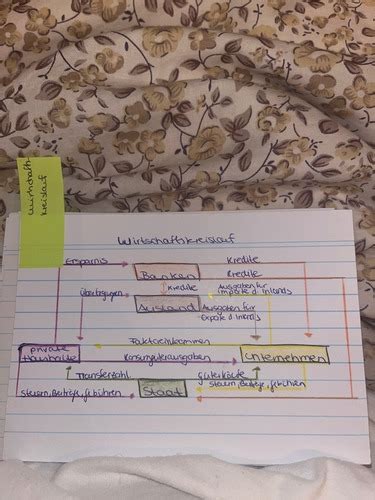 Wirtschafts
kreislauf
Wirtschaftskreislauf
Ersparnis
Kredite
Banken
Kredite
Kredite
Ausgaben für
Importe d. Inlands
Übertragungen
Ausland
Ausgaben für
Exporte d. Inlands
Faktoreinkommen
private
Haushalte
Konsumgüterausgaben
Unternehmen
Transferzahl.
Güterkäufe
Steuern, Beiträge, Gebühren
Staat
Steuern, Beiträge, Gebühren